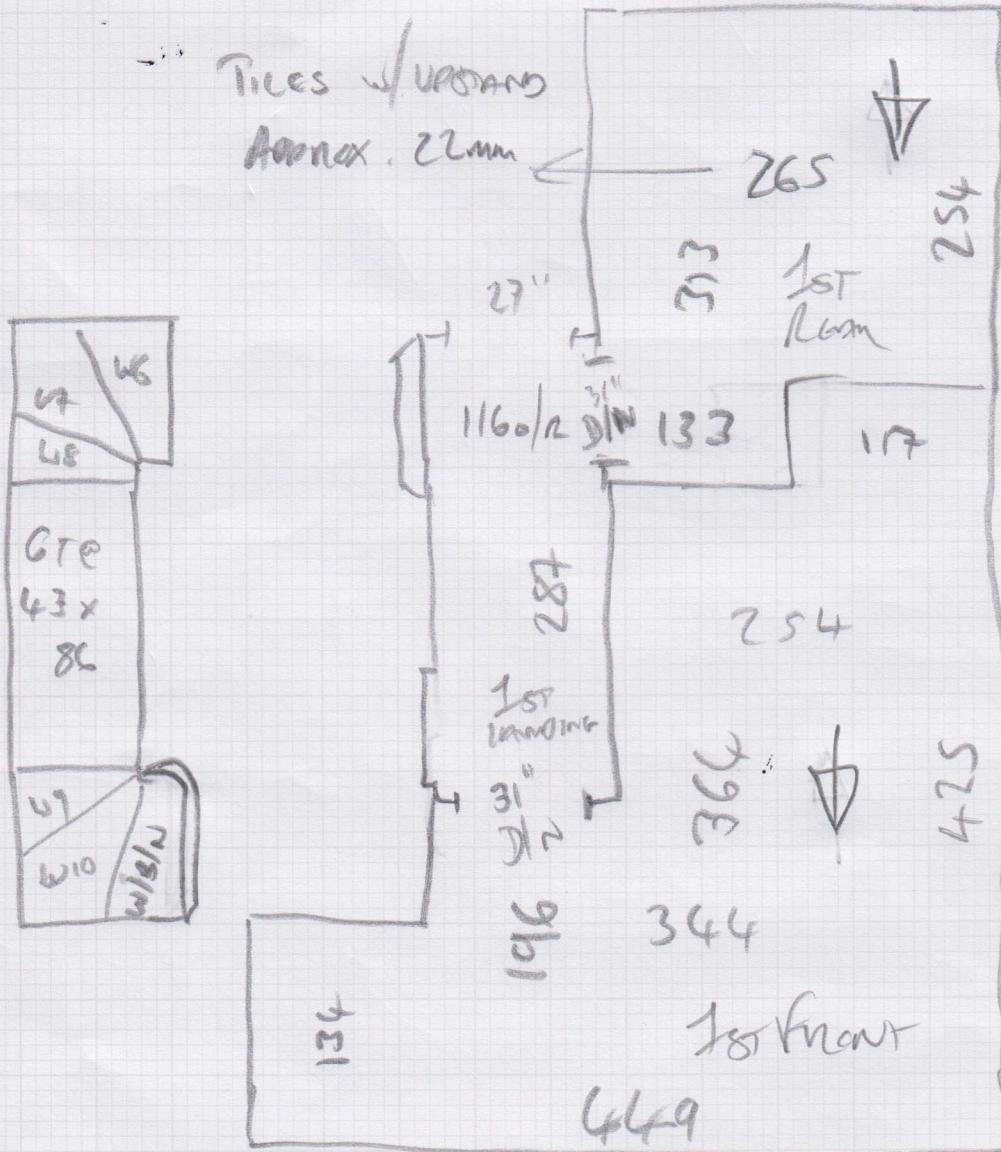 TILES W/ UPSTAND
APPROX. 22mm
265
254
313
1ST
ROOM
27"
W6
W7
W8
1160/R
31"
D/N
133
117
6T@
43x
86
287
254
1ST
LANDING
31"
D/N
364
425
W9
W10
W/B/N
196
344
134
1ST FRONT
449